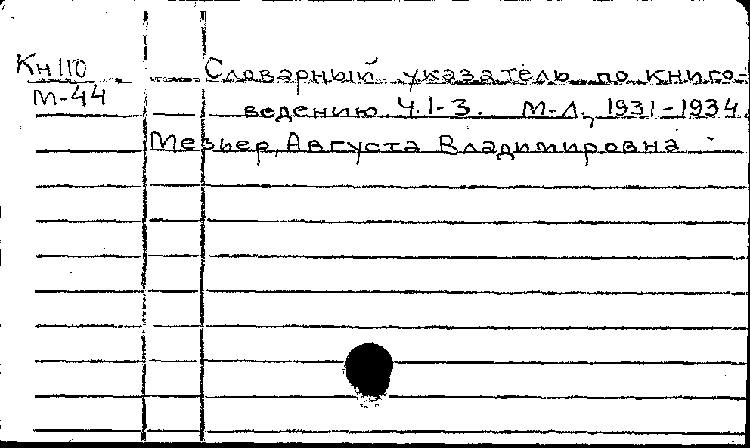 Кн110 Словарный указатель по книго-
М-44 ведению. Ч.1-3. М-Л., 1931-1934.
Мезьер, Августа Владимировна